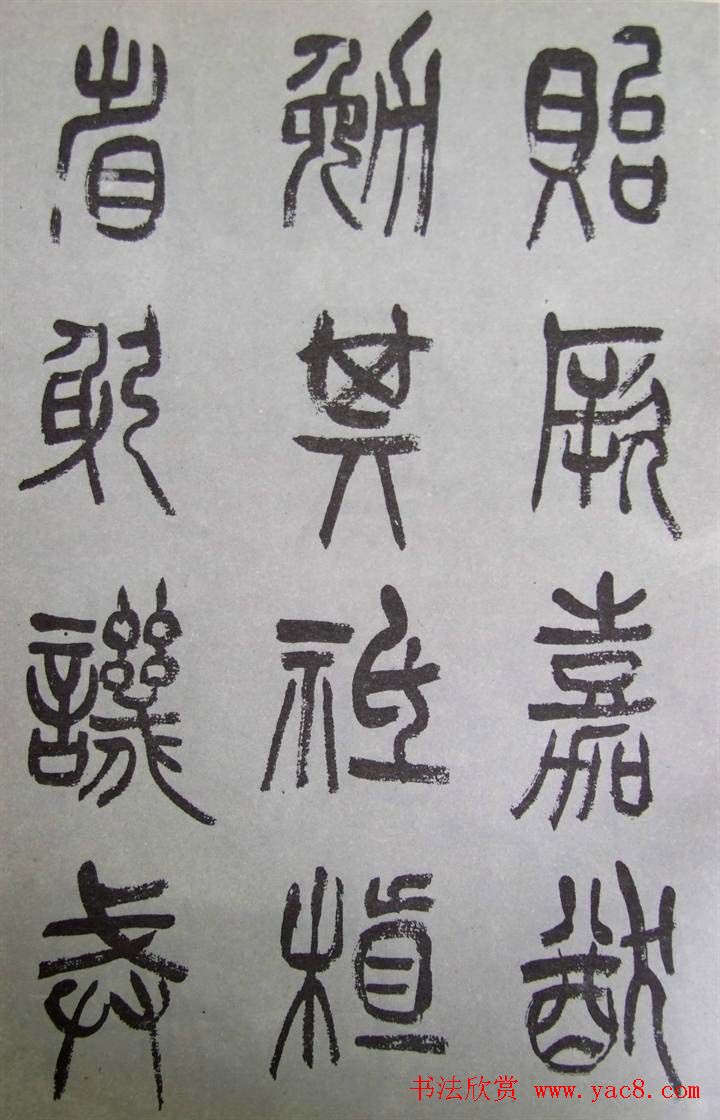 貽厥嘉猷
勉其祗植
省躬譏戒
书法欣赏 www.yac8.com